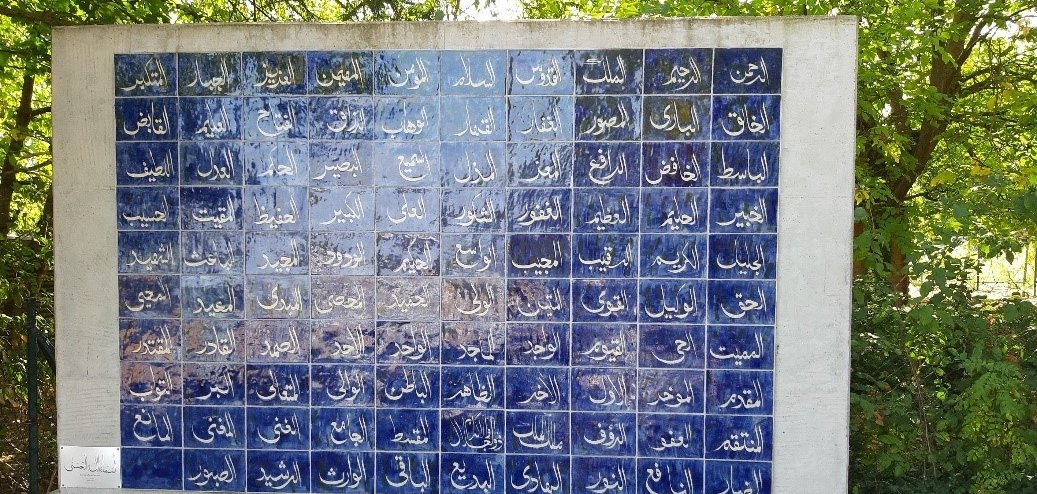 الرحمن الرحيم الملك القدوس السلام المؤمن المهيمن العزيز الجبار المتكبر
الخالق البارئ المصور الغفار القهار الوهاب الرزاق الفتاح العليم القابض
الباسط الخافض الرافع المعز المذل السميع البصير الحكم العدل اللطيف
الخبير الحليم العظيم الغفور الشكور العلى الكبير الحفيظ المقيت الحسيب
الجليل الكريم الرقيب المجيب الواسع الحكيم الودود المجيد الباعث الشهيد
الحق الوكيل القوى المتين الولى الحميد المحصى المبدئ المعيد المحيى
المميت الحى القيوم الواجد الماجد الواحد الاحد الصمد القادر المقتدر
المقدم المؤخر الاول الاخر الظاهر الباطن الوالى المتعالى البر التواب
المنتقم العفو الرؤف مالك الملك ذو الجلال والاكرام المقسط الجامع الغنى المغنى المانع
الضار النافع النور الهادى البديع الباقى الوارث الرشيد الصبور